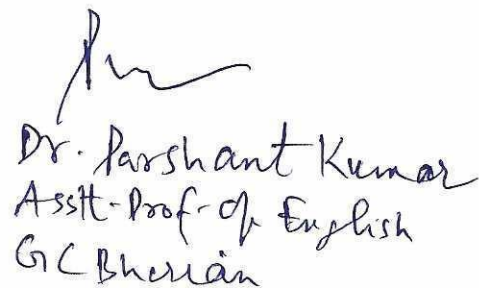 Dr. Parshant Kumar
Asstt-Prof-of English
GC Bherian